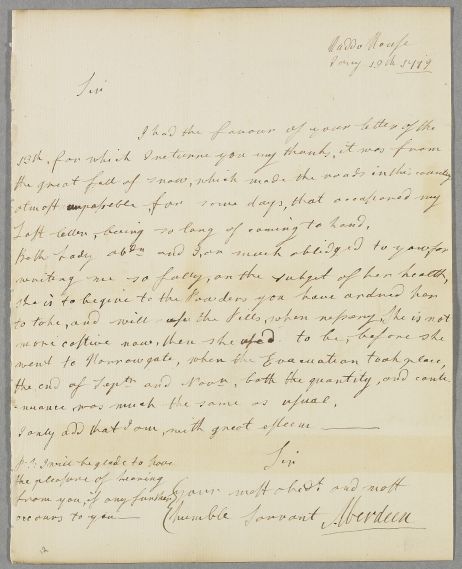 Haddo House
Janry 18th 1779
Sir
I had the favour of your letter of the
13th, for which I returne you my thanks, it was from
the great fall of snow, which made the roads in this country
almost unpassible for some days, that occasioned my
Last letter, being so long of coming to hand,
Both Lady Abdn and I, are much oblidged to you for
writing me so fully, on the subject of her health,
she is to begine to the Powders you have ordred her
to take, and will use the Pills, when nessary She is not
more costive now, then she used to be, before she
went to Harrowgate, when the Evacuation took place,
the end of Septr and Novr, both the quantity, and conti
nuance, was much the same as usual,
I only add that I am, with great esteem
Sir
Your most obedt. and most
humble Servant Aberdeen
P.S. I will be glade to have
the pleasure of hearing
from you, if any further
occurs to you